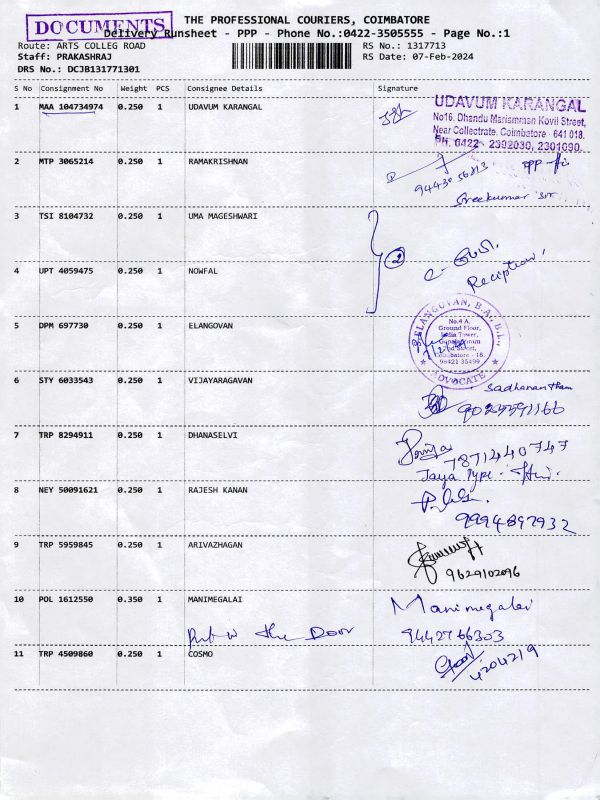 DOCUMENTS
THE PROFESSIONAL COURIERS, COIMBATORE
Delivery Runsheet - PPP - Phone No.:0422-3505555 - Page No.:1
Route: ARTS COLLEG ROAD
RS No.: 1317713
Staff: PRAKASHRAJ
RS Date: 07-Feb-2024
DRS No.: DCJB131771301
S No Consignment No Weight PCS Consignee Details Signature
1 MAA 104734974 0.250 1 UDAVUM KARANGAL
UDAVUM KARANGAL
No16, Dhandu Mariamman Kovil Street,
Near Collectrate. Coimbatore - 641 018.
Ph. 0422 - 2302030, 2301090.
2 MTP 3065214 0.250 1 RAMAKRISHNAN
9443056813
Sreekumar
3 TSI 8104732 0.250 1 UMA MAGESHWARI
2
Reception
4 UPT 4059475 0.250 1 NOWFAL
5 DPM 697730 0.250 1 ELANGOVAN
ELANGOVAN, B.A., B.L.,
No.4 A,
Ground Floor,
India Tower,
Gopalapuram
2nd Street,
Coimbatore - 18.
98421 35499
ADVOCATE
6 STY 6033543 0.250 1 VIJAYARAGAVAN
Sadhanantham
9024591166
7 TRP 8294911 0.250 1 DHANASELVI
7871440747
Jaya Type
8 NEY 50091621 0.250 1 RAJESH KANAN
9994897932
9 TRP 5959845 0.250 1 ARIVAZHAGAN
9629102096
10 POL 1612550 0.350 1 MANIMEGALAI
Manimegalai
Put in the Door
9442766303
11 TRP 4509860 0.250 1 COSMO
4204219